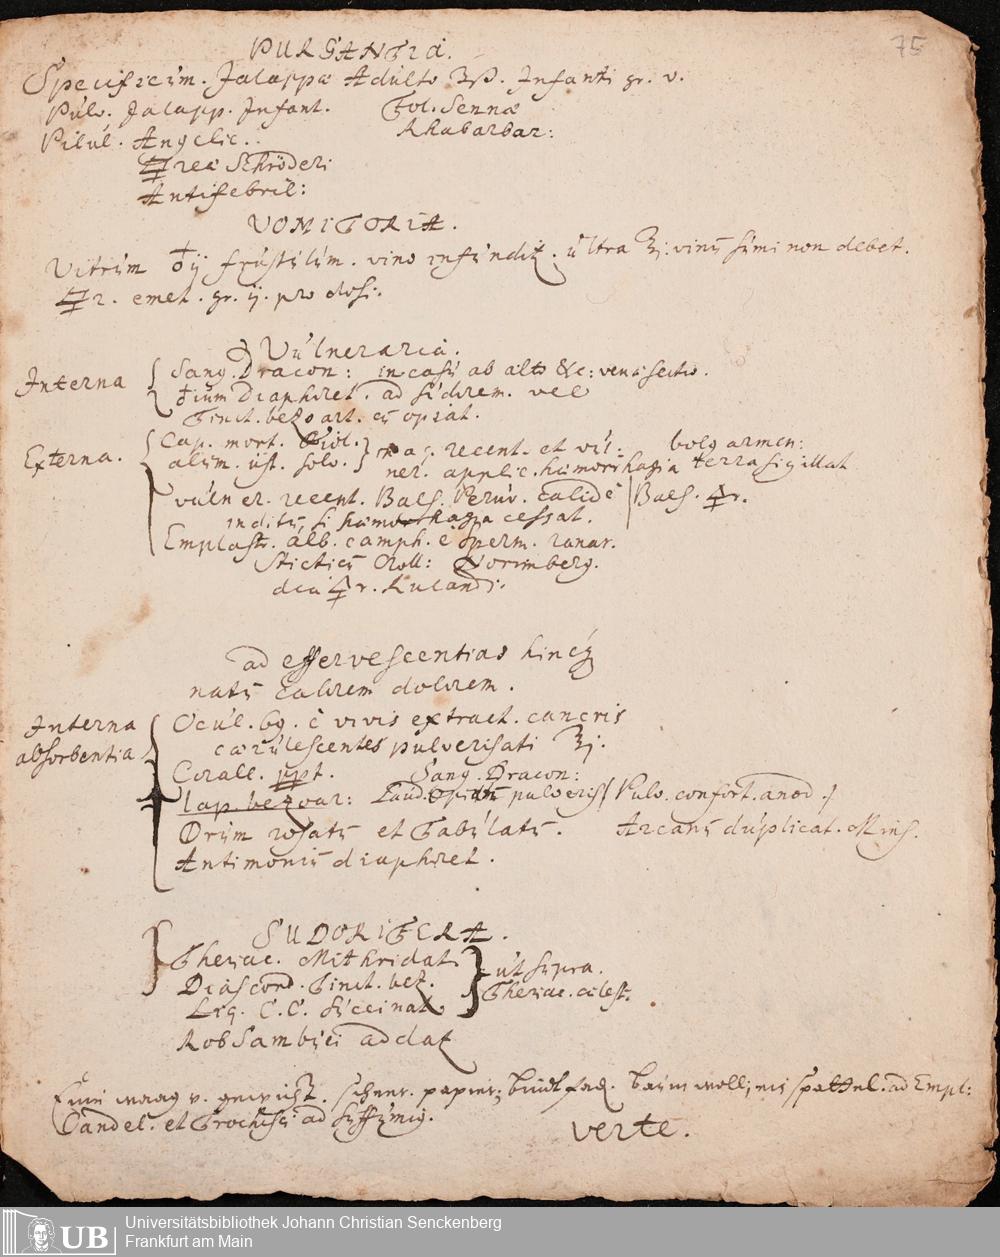 75
PURGANTIA.
Specificum. Jalappæ Adulto ʒß. Infanti gr. v.
Pulv. Jalapp. Infant. Fol. Sennæ
Pilul. Angelic. . Rhabarbar:
🜿rea Schröderi
Antifebril:
VOMITORIA.
Vitrum ♁ij frustulum. vino infundit. ultra ʒj. vinū sumi non debet.
🜿r. emet. gr. ij. pro dosi.
Vulneraria.
Interna Sang. Dracon: in casu ab alto &c: venæsectio.
♁ium Diaphoret. ad sudorem. vel
Tinct. bezoart. cū opiat.
Externa. Cap. mort. Vitiol. recent. et vul- bolg armen:
alum. ust. solv. ner. applic. hæmorrhagia terra sigillat
vulner. recent. Bals. Peruv. calide Bals. 🜍r.
inditū, si hæmorrhagia cessat.
Emplastr. alb. camph. è sperm. ranar.
Sticticū Croll: Norimberg.
dia 🜍r. Rulandi.
ad effervescentias hincq
natū calorem dolorem.
Interna Ocul. 69. è vivis extract. cancris
absorbentia cærulescentes pulverisati ʒj.
Corall. ppt. Sang. Dracon:
lap. bezoar: Laud. pulveris/ Pulv. confort. anod./
Orum rosatū et Tabulatū. Arcanū duplicat. Mins.
Antimoniū diaphoret.
SUDORIFERA.
Theriac. Mithridat. ut supra.
Diascord. Tinct. bez. Theriac. cœlest.
Liq. C.C. succinat.
Rob Sambuci addat
Eine waag v. gewicht. papier; baumwoll; ein spattel. ad Empl:
Candel. et Trochisci ad suffumig.
verte.
UB
Universitätsbibliothek Johann Christian Senckenberg
Frankfurt am Main